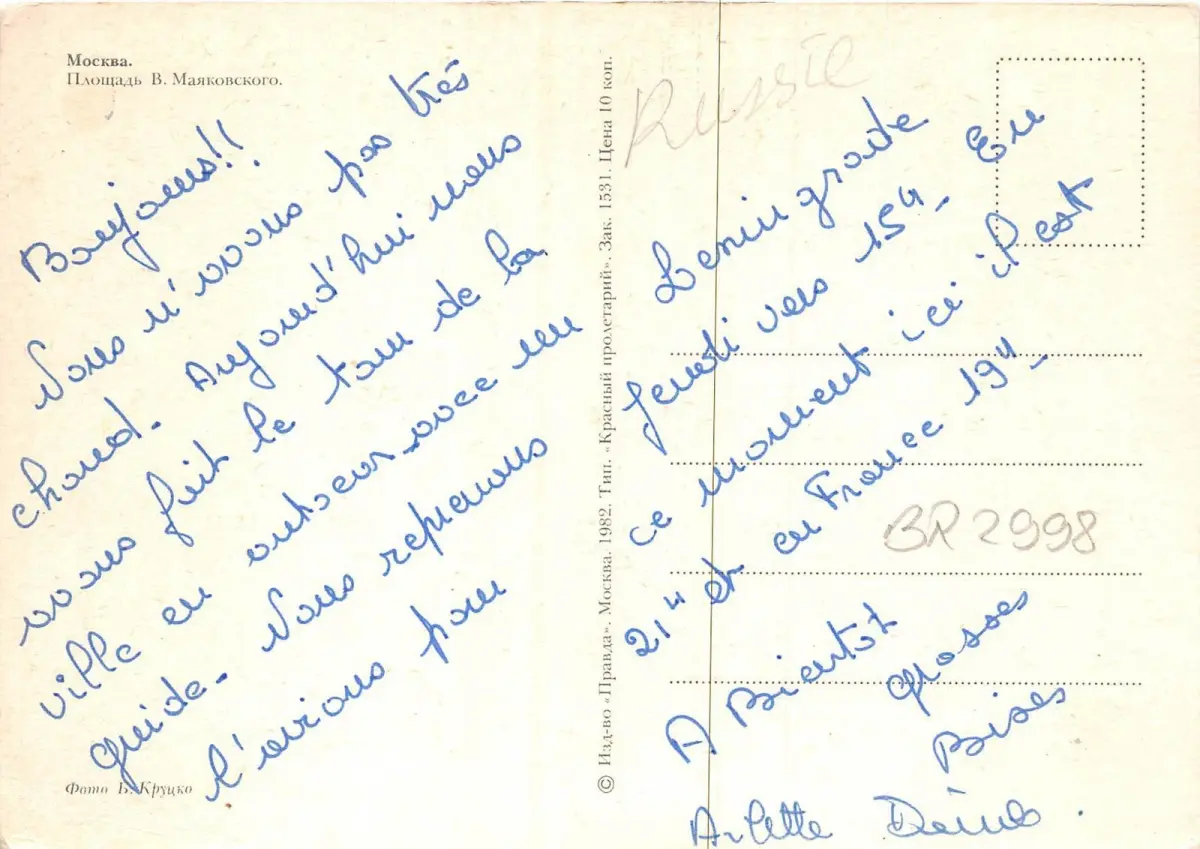 Москва.
Площадь В. Маяковского.
Bonjours!!
Nous n'avons pas très
chaud. Aujourd'hui nous
avons fait le tour de la
ville en autocar avec un
guide. Nous reprenons
l'avions pour
Фото Б. Круцко
© Изд-во «Правда». Москва. 1982. Тип. «Красный пролетарий». Зак. 1531. Цена 10 коп.
Russie
Leningrade
jeudi vers 15H. En
ce moment ici il est
21H et en France 19H.
BR 2998
A Bientôt
grosses
Bises
Arlette Denis.